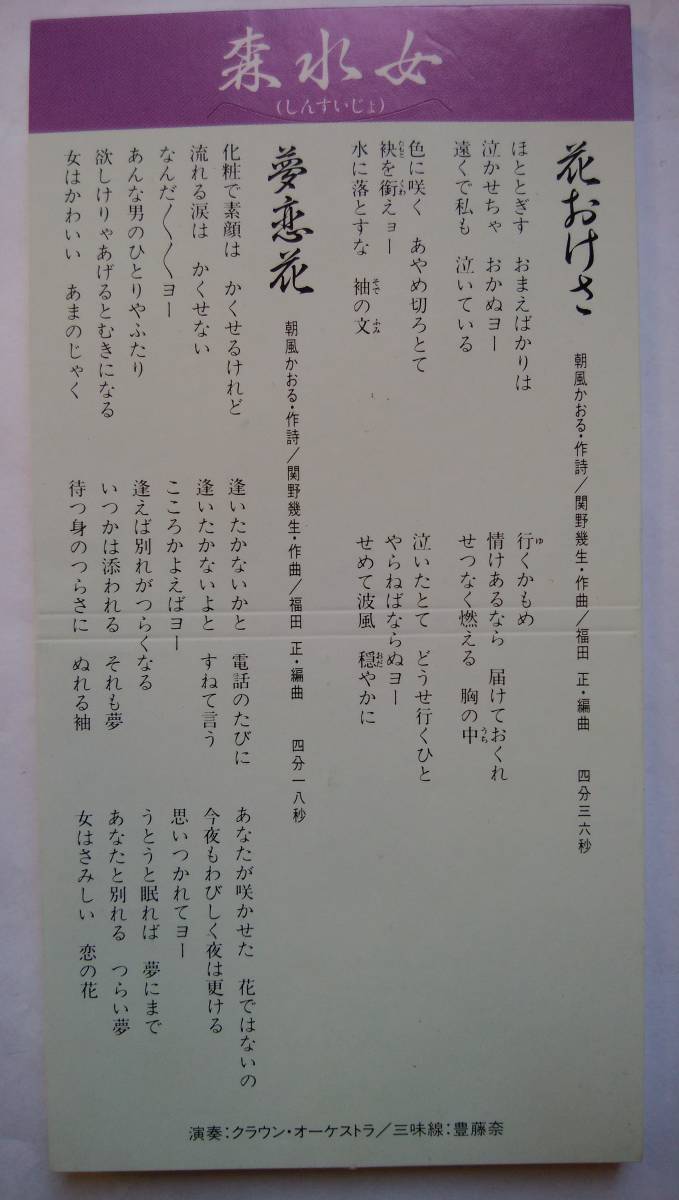 森水女
(しんすいじょ)
花おけさ
朝風かおる・作詩/関野幾生・作曲/福田 正・編曲 四分三六秒
ほととぎす おまえばかりは
泣かせちゃ おかぬヨー
遠くで私も 泣いている
色に咲く あやめ切ろとて
袂を銜えョー
水に落とすな 袖の文
行くかもめ
情けあるなら 届けておくれ
せつなく燃える 胸の中
泣いたとて どうせ行くひと
やらねばならぬヨー
せめて波風 穏やかに
夢恋花
朝風かおる・作詩/関野幾生・作曲/福田 正・編曲 四分一八秒
化粧で素顔は かくせるけれど
流れる涙は かくせない
なんだ〱〱ヨー
あんな男のひとりやふたり
欲しけりゃあげるとむきになる
女はかわいい あまのじゃく
逢いたかないかと 電話のたびに
逢いたかないよと すねて言う
こころかよえばヨー
逢えば別れがつらくなる
いつかは添われる それも夢
待つ身のつらさに ぬれる袖
あなたが咲かせた 花ではないの
今夜もわびしく夜は更ける
思いつかれてヨー
うとうと眠れば 夢にまで
あなたと別れる つらい夢
女はさみしい 恋の花
演奏:クラウン・オーケストラ/三味線:豊藤奈